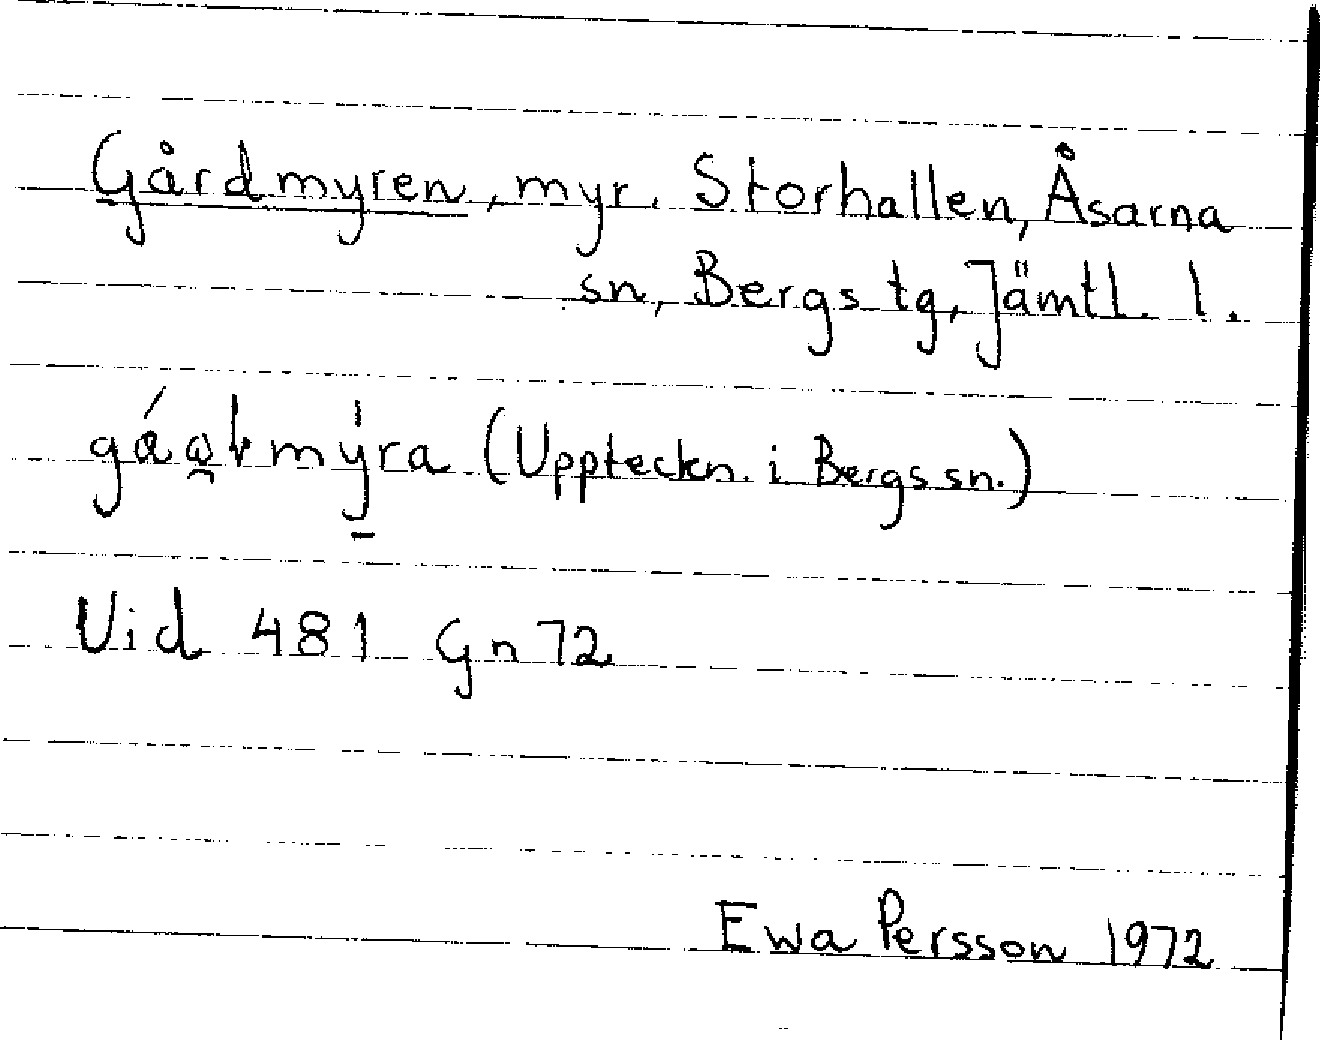 Gårdmyren, myr. Storhallen, Åsarna
sn, Bergs tg, Jämtl. l.
(Uppteckn. i Bergs sn.)
Vid 481 Gn 72
Ewa Persson 1972